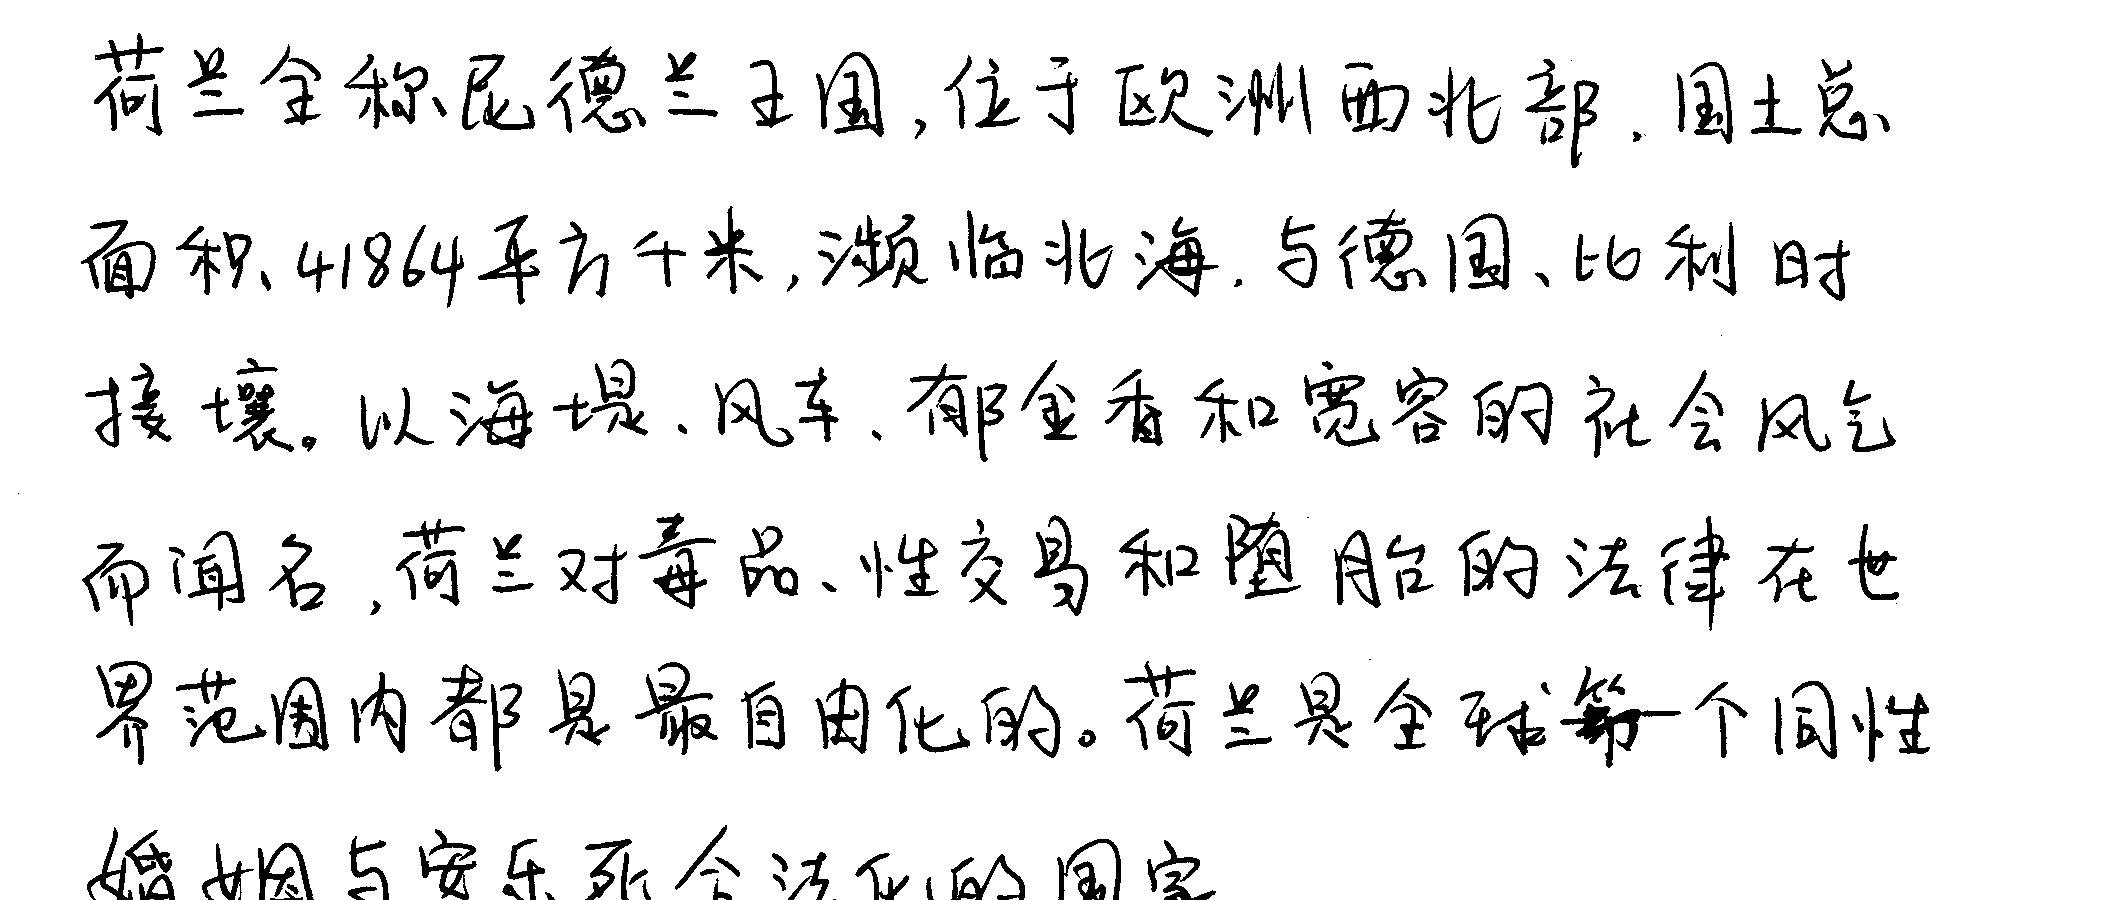 荷兰全称尼德兰王国,位于欧洲西北部.国土总
面积41864平方千米,濒临北海.与德国、比利时
接壤。以海堤、风车、郁金香和宽容的社会风气
而闻名,荷兰对毒品、性交易和堕胎的法律在世
界范围内都是最自由化的。荷兰是全球第一个同性
婚姻与安乐死合法化的国家